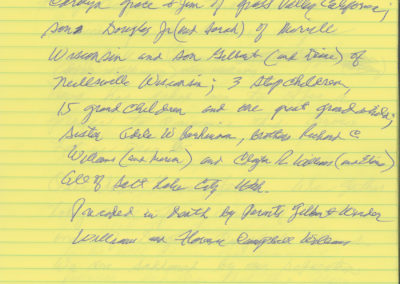 Carolyn Grace & Jim of Grass Valley California;
sons Douglas Jr (and Sarah) of Merrill
Wisconsin and son Gilbert (and Diane) of
Neillsville Wisconsin; 3 Stepchildren,
15 grandchildren and one great grandchild;
Sister, Adele W , Brothers Richard C
Williams (and ) and Clayton R. Williams (and )
All of Salt Lake City Utah.
Preceded in death by Parents Gilbert
Williams and Florence Campbell Williams